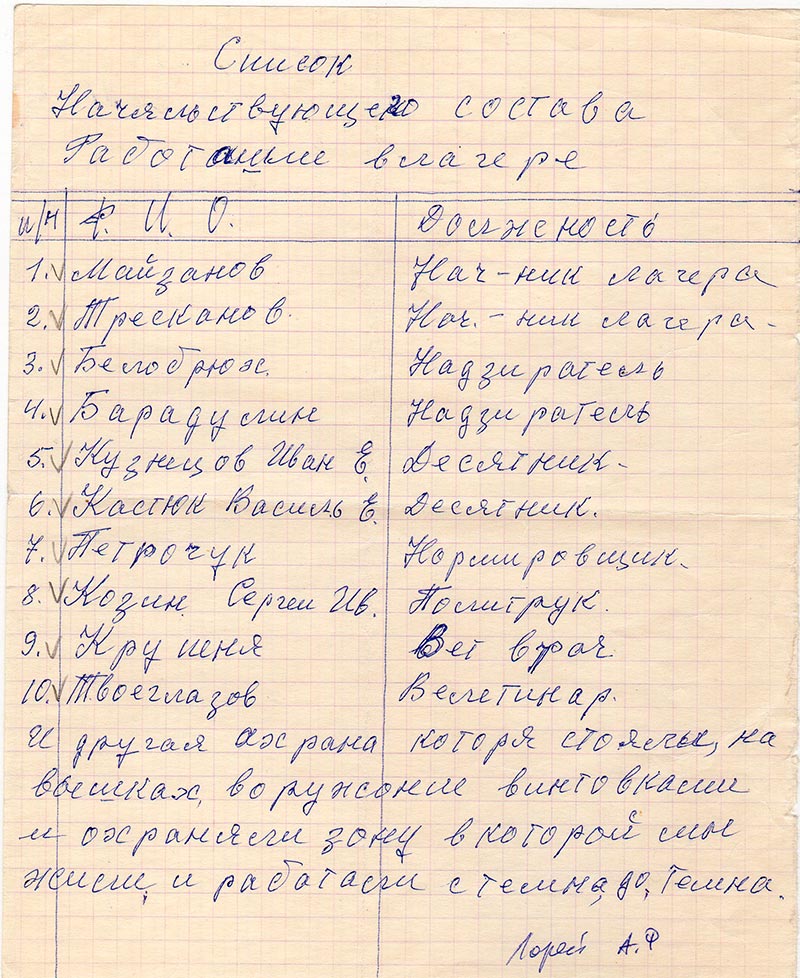 Список
Начяльствующего состава
Работашие влагере
п/н Ф. И. О. Долженость
1. Майзанов Нач-ник лагера
2. Тресканов. Нач.-ник лагера-
3. Белобрюх. Надзиратель
4. Барадулин Надзиратель
5. Кузнцов Иван Е. Десятник-
6. Кастюк Василь Е. Десятник.
7. Петрочук Нормировщик.
8. Козин Сергеи Ив. Политрук.
9. Крупеня Вет врач
10. Твоеглазов Велетинар.
И другая ахрана которя стоялы, на
вышках, воружоние винтовками
и охраняли зону вкоторой мы
жили, и работали стемна, до, Темна.
Лорей А.Ф